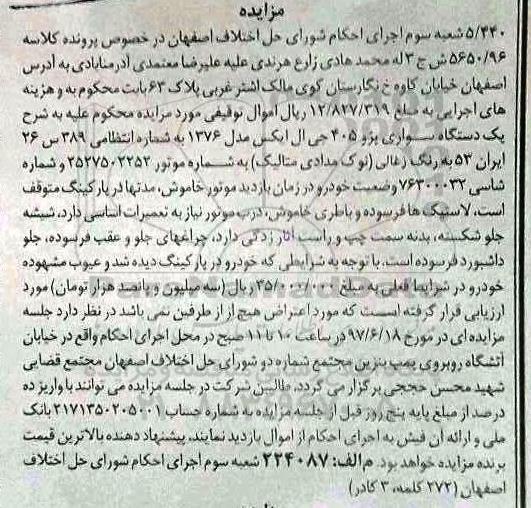 مزایده
۵/۴۴۰ شعبه سوم اجرای احکام شورای حل اختلاف اصفهان در خصوص پرونده کلاسه
۵۶۵۰/۹۶ ش ج ۳ له محمد هادی زارع هرندی علیه علیرضا معتمدی آدرمنابادی به آدرس
اصفهان خیابان کاوه خ نگارستان کوی مالک اشتر غربی پلاک ۶۳ بابت محکوم به و هزینه
های اجرایی به مبلغ ۱۲/۸۲۷/۳۱۹ ریال اموال توقیفی مورد مزایده محکوم علیه به شرح
یک دستگاه سواری پژو ۴۰۵ جی ال ایکس مدل ۱۳۷۶ به شماره انتظامی ۳۸۹ س ۲۶
ایران ۵۳ به رنگ زغالی (نوک مدادی متالیک) به شماره موتور ۲۵۲۷۵۰۲۲۵۲ و شماره
شاسی ۷۶۳۰۰۰۳۲ وضعیت خودرو در زمان بازدید موتور خاموش، مدتها در پارکینگ متوقف
است، لاستیک ها فرسوده و باطری خاموش، درب موتور نیاز به تعمیرات اساسی دارد، شیشه
جلو شکسته، بدنه سمت چپ و راست آثار زدگی دارد، چراغهای جلو و عقب فرسوده، جلو
داشبورد فرسوده است. با توجه به شرایطی که خودرو در پارکینگ دیده شد و عیوب مشهوده
خودرو در شرایط فعلی به مبلغ ۳۵/۰۰۰/۰۰۰ ریال (سه میلیون و پانصد هزار تومان) مورد
ارزیابی قرار گرفته است که مورد اعتراض هیچ از از طرفین نمی باشد در نظر دارد جلسه
مزایده ای در مورخ ۹۷/۶/۱۸ در ساعت ۱۰ تا ۱۱ صبح در محل اجرای احکام واقع در خیابان
آتشگاه روبروی پمپ بنزین مجتمع شماره دو شورای حل اختلاف اصفهان مجتمع قضایی
شهید محسن حججی برگزار می گردد. طالبین شرکت در جلسه مزایده می توانند با واریز ده
درصد از مبلغ پایه پنج روز قبل از جلسه مزایده به شماره حساب ۲۱۷۱۳۵۰۲۰۵۰۰۱ بانک
ملی و ارائه آن فیش به اجرای احکام از اموال بازدید نمایند، پیشنهاد دهنده بالاترین قیمت
برنده مزایده خواهد بود. م الف: ۲۲۴۰۸۷ شعبه سوم اجرای احکام شورای حل اختلاف
اصفهان (۲۷۲ کلمه، ۳ کادر)